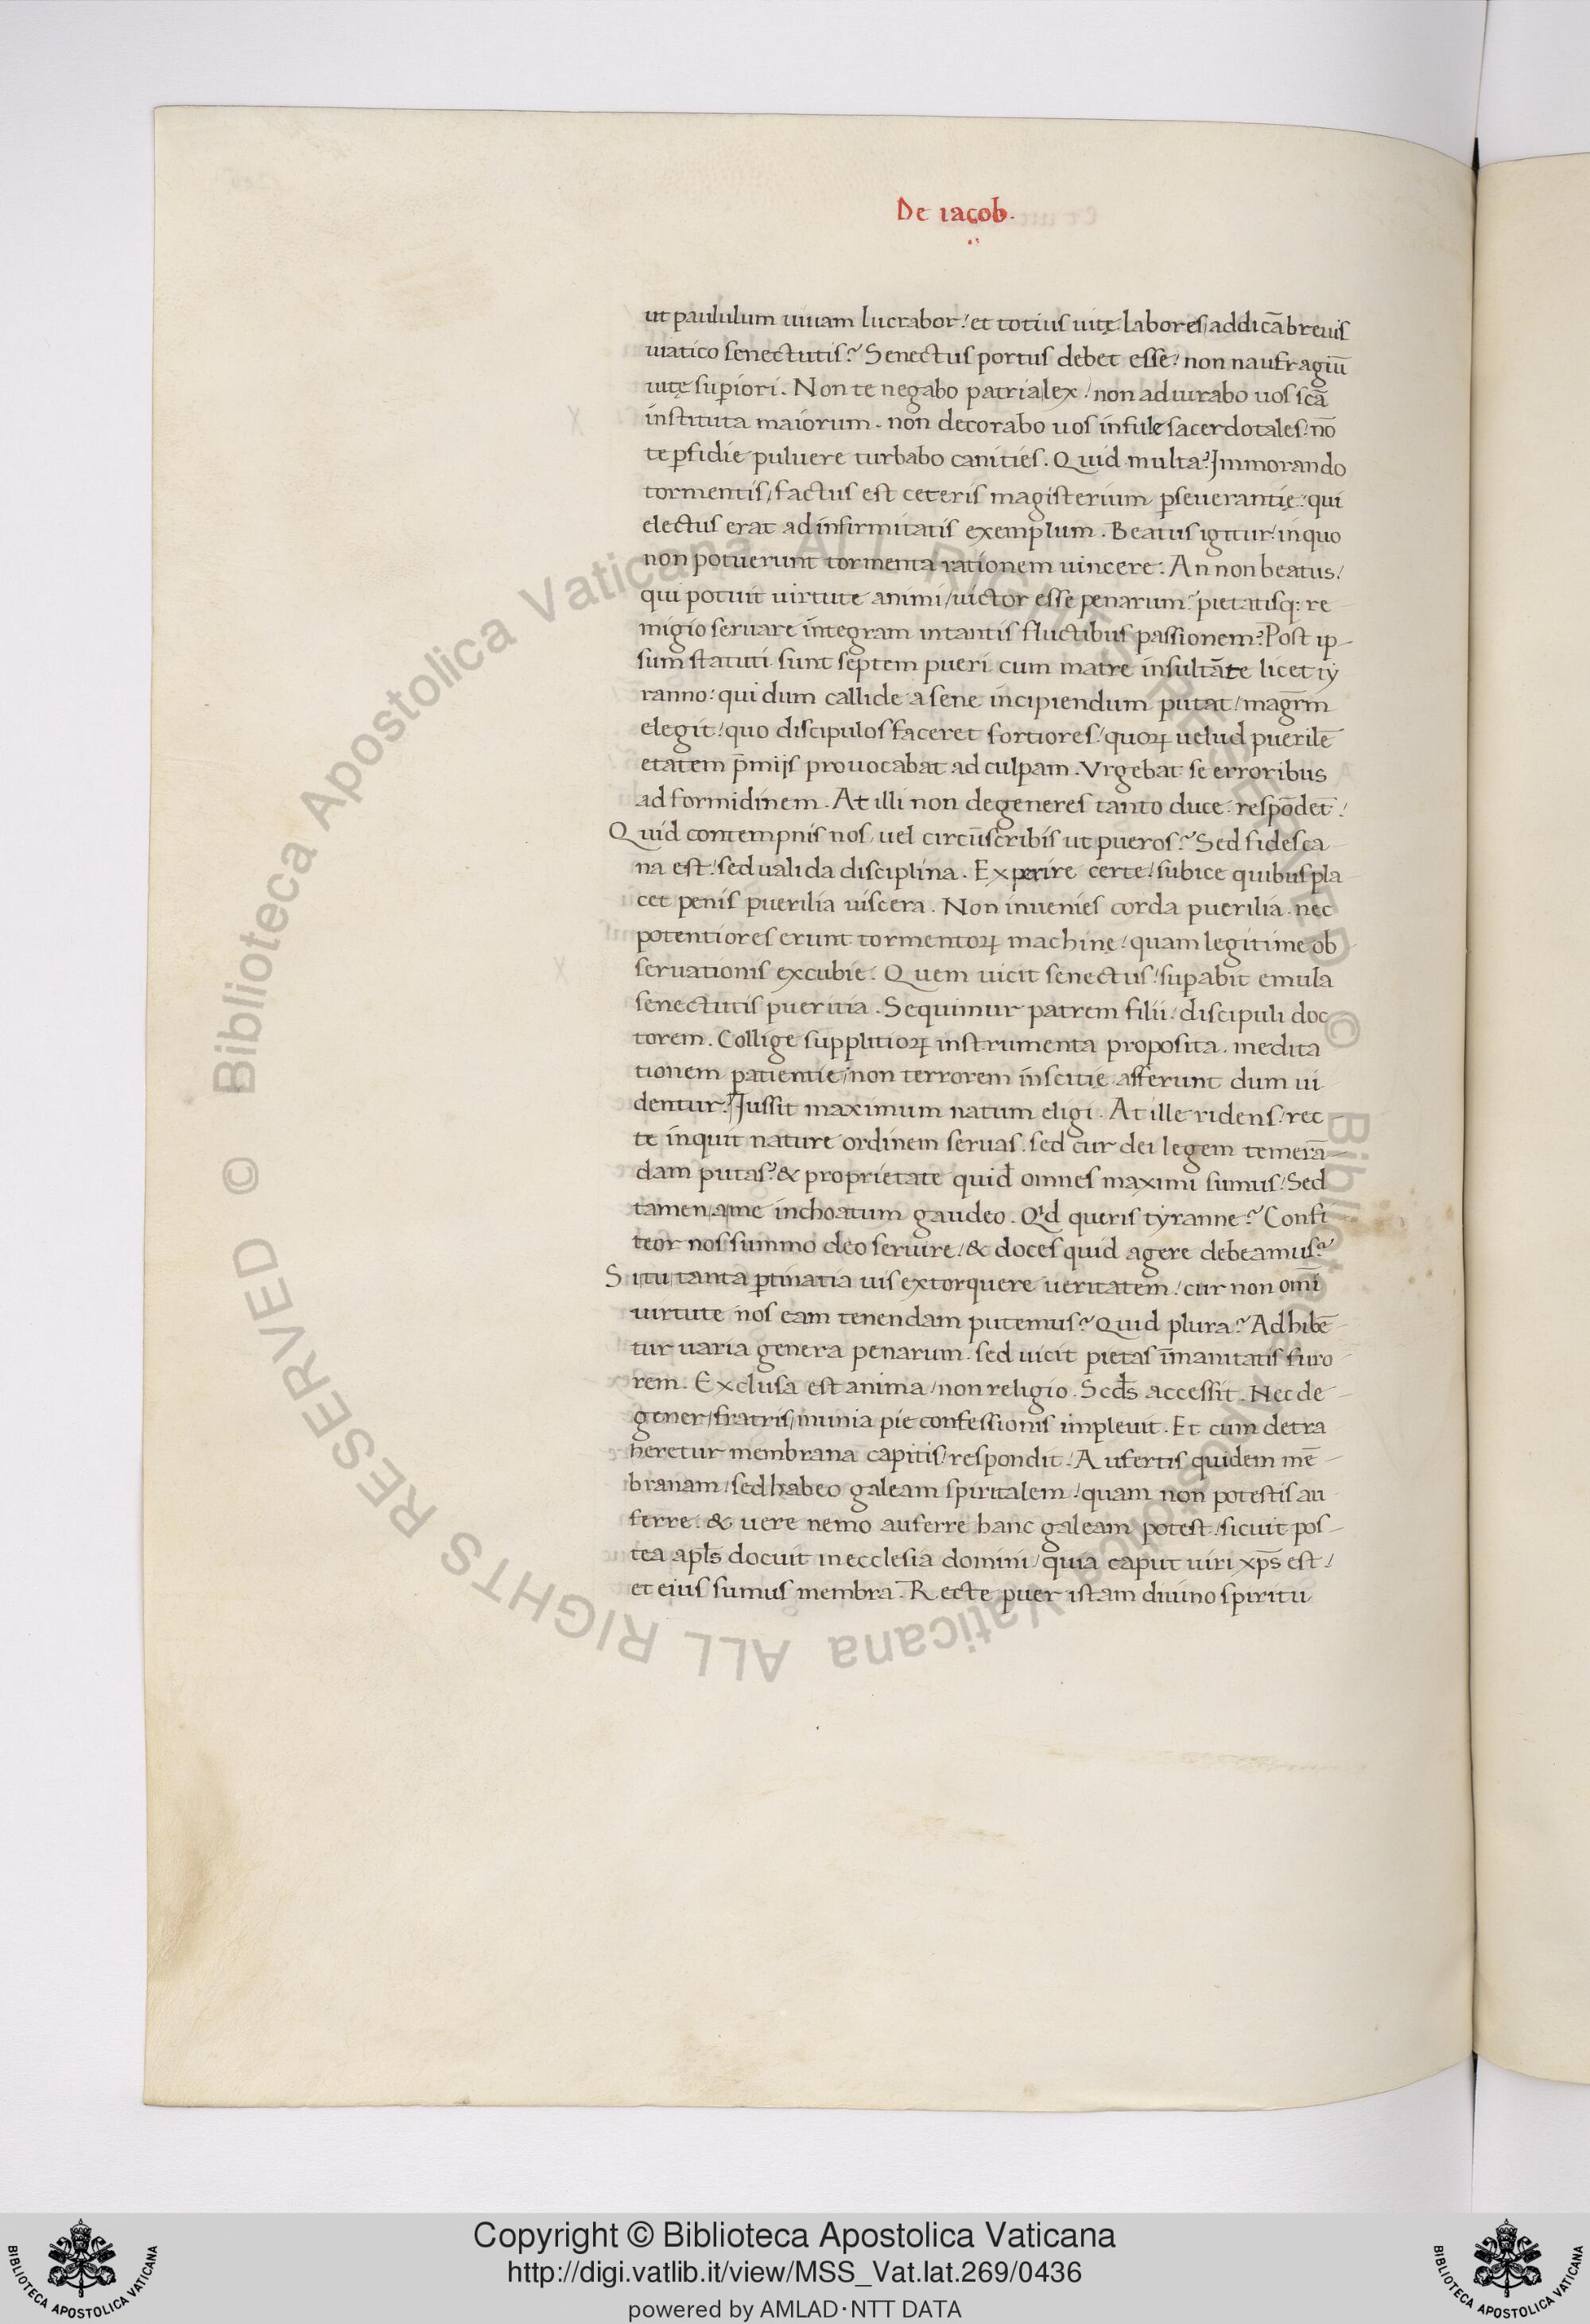 De iacob.
ut paululum uiuam lucrabor! et totius uitę labores addicā breuis
uiatico senectutis? Senectus portus debet esse! non naufragiū
uitę supiori. Non te negabo patria lex! non adiurabo uos scā
instituta maiorum. non decorabo uos infule sacerdotales! nō
te pfidie puluere turbabo canities. Quid multa? Immorando
tormentis/ factus est ceteris magisterium pseuerantię! qui
electus erat ad infirmitatis exemplum. Beatus igitur! in quo
non potuerunt tormenta rationem uincere. An non beatus!
qui potuit uirtute animi/ uictor esse penarum? pietatisq: re
migio seruare integram in tantis fluctibus passionem? Post ip-
sum statuti sunt septem pueri cum matre insultāte licet ty
ranno! qui dum callide a sene incipiendum putat! magr̄m
elegit! quo discipulos faceret fortiores! quoꝝ uelud puerilē
etatem p̄mijs prouocabat ad culpam. Vrgebat se erroribus
ad formidinem. At illi non degeneres tanto duce respōdēt!
Quid contempnis nos/ uel circūscribis ut pueros? Sed fides ca
na est! sed ualida disciplina. Experire certe! subice quibus pla
cet penis puerilia uiscera. Non inuenies corda puerilia. nec
potentiores erunt tormentoꝝ machinę! quam legitime ob
seruationis excubie. Quem uicit senectus! supabit emula
senectutis pueritia. Sequimur patrem filii! discipuli doc
torem. Collige supplitioꝝ instrumenta proposita. medita
tionem patientie! non terrorem inscitię afferunt dum ui
dentur? Jussit maximum natum eligi. At ille ridens! rec
te inquit nature ordinem seruas. sed cur dei legem temerā-
dam putas? & proprietate quid omnes maximi sumus! Sed
tamen a me inchoatum gaudeo. Qd queris tyranne? Confi
teor nos summo deo seruire! & doces quid agere debeamus?
Si tu tanta ptinatia uis extorquere ueritatem! cur non omī
uirtute nos eam tenendam putemus? Quid plura? Adhibē
tur uaria genera penarum. sed uicit pietas īmanitatis furo
rem. Exclusa est anima/ non religio. Scds accessit. Nec de
gener/ fratris/ munia pie confessionis impleuit. Et cum detra
heretur membrana capitis! respondit! Aufertis quidem mē
branam! sed habeo galeam spiritalem! quam non potestis au
ferre. & uere nemo auferre hanc galeam potest! sicuit pos-
tea apls docuit in ecclesia domini/ quia caput uiri xp̄s est!
et eius sumus membra. Recte puer istam diuino spiritu
© Biblioteca Apostolica Vaticana ALL RIGHTS RESERVED © Biblioteca Apostolica Vaticana ALL RIGHTS RESERVED
Copyright © Biblioteca Apostolica Vaticana
http://digi.vatlib.it/view/MSS_Vat.lat.269/0436
powered by AMLAD·NTT DATA
BIBLIOTECA APOSTOLICA VATICANA
BIBLIOTECA APOSTOLICA VATICANA